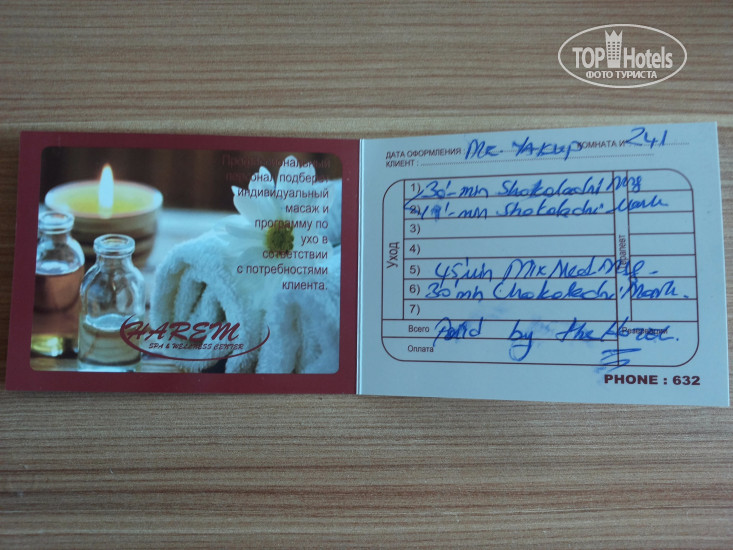 TOP Hotels
ФОТО ТУРИСТА
Профессиональный
персонал подберет
индивидуальный
массаж и
программу по
ухо в
соответствии
с потребностями
клиента.
HAREM
SPA & WELLNESS CENTER
ДАТА ОФОРМЛЕНИЯ
КОМНАТА И
241
КЛИЕНТ :
Mr. Yakup
Уход
1) 30'-mn Shokolachi
2) Shokolachi Mask
3)
4)
5) 45'mn Mix Med.
6) 30'mn Chokolachi Mask.
7)
Всего
Paid by the Hotel.
Оплата
PHONE : 632